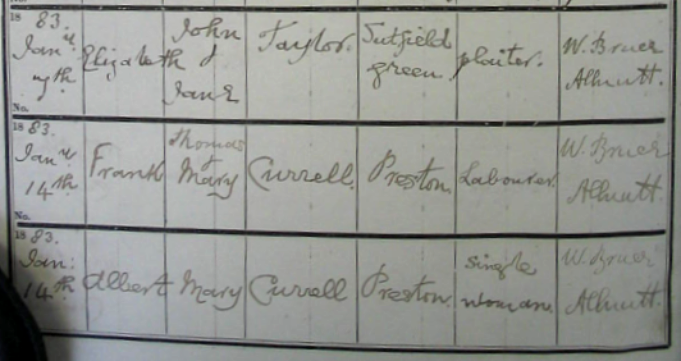 1883.
Jany
7th
Elizabeth
John
&
Jane
Taylor.
Tutfield
green
plaiter.
W. Bruer
Allnutt.
No.
1883.
Jany
14th
Frank
Thomas
&
Mary
Currell.
Preston.
Labourer.
W. Bruer
Allnutt.
No.
1883.
Jan:
14th
Albert
Mary
Currell
Preston.
single
woman.
W. Bruer
Allnutt.